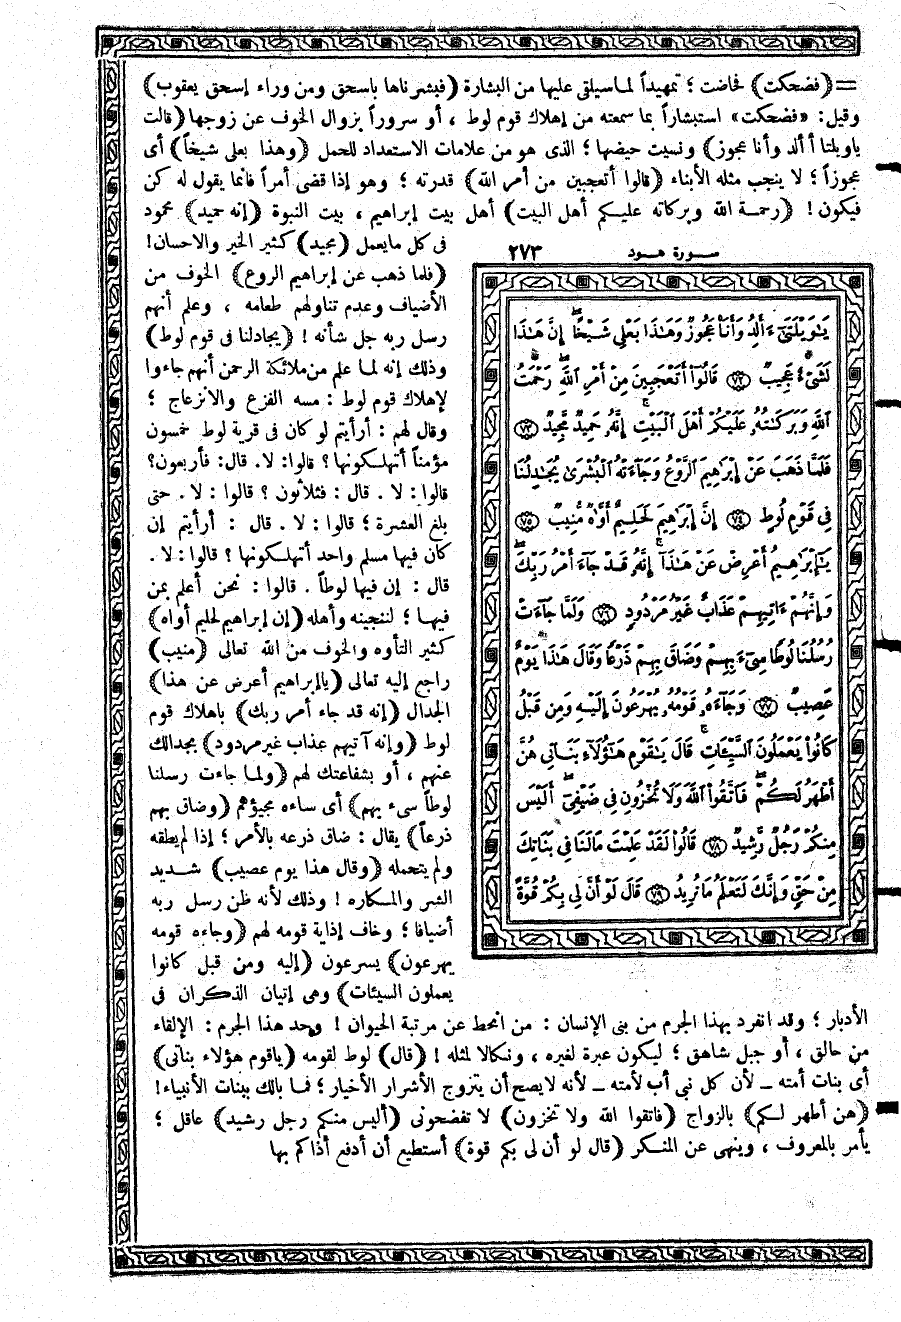 =(فضحكت) فحاضت ؛ تمهيداً لما سيلقى عليها من البشارة (فبشرناها بإسحق ومن وراء إسحق يعقوب)
وقيل: «فضحكت» استبشاراً بما سمعته من إهلاك قوم لوط ، أو سروراً بزوال الخوف عن زوجها (قالت
ياويلتا أألد وأنا عجوز) ونسيت حيضها ؛ الذى هو من علامات الاستعداد للحمل (وهذا بعلى شيخاً) أى
عجوزاً ؛ لا ينجب مثله الأبناء (قالوا أتعجبين من أمر الله) قدرته ؛ وهو إذا قضى أمراً فإنما يقول له كن
فيكون ! (رحمة الله وبركاته عليكم أهل البيت) أهل بيت إبراهيم ، بيت النبوة (إنه حميد) محمود
فى كل مايعمل (مجيد) كثير الخير والاحسان!
(فلما ذهب عن إبراهيم الروع) الخوف من
الأضياف وعدم تناولهم طعامه ، وعلم أنهم
رسل ربه جل شأنه ! (يجادلنا فى قوم لوط)
وذلك إنه لما علم من ملائكة الرحمن أنهم جاءوا
لإهلاك قوم لوط : مسه الفزع والانزعاج ؛
وقال لهم : أرأيتم لو كان فى قرية لوط خمسون
مؤمناً أتهلكونها ؟ قالوا: لا. قال: فأربعون؟
قالوا : لا . قال : فثلاثون ؟ قالوا : لا . حتى
بلغ العشرة ؛ قالوا : لا . قال : أرأيتم إن
كان فيها مسلم واحد أتهلكونها ؟ قالوا : لا .
قال : إن فيها لوطاً . قالوا : نحن أعلم بمن
فيها ؛ لننجينه وأهله (إن إبراهيم لحليم أواه)
كثير التأوه والخوف من الله تعالى (منيب)
راجع إليه تعالى (يا إبراهيم أعرض عن هذا)
الجدال (إنه قد جاء أمر ربك) بإهلاك قوم
لوط (وإنه آتيهم عذاب غير مردود) بجدالك
عنهم ، أو بشفاعتك لهم (ولما جاءت رسلنا
لوطاً سىء بهم) أى ساءه مجيؤهم (وضاق بهم
ذرعاً) يقال : ضاق ذرعه بالأمر ؛ إذا لم يطقه
ولم يتحمله (وقال هذا يوم عصيب) شديد
الشر والمكاره ! وذلك لأنه ظن رسل ربه
أضيافا ؛ وخاف إذاية قومه لهم (وجاءه قومه
يهرعون) يسرعون (إليه ومن قبل كانوا
يعملون السيئات) وهى إتيان الذكران فى
سورة هود ٢٧٣
يَٰوَيْلَتَىٰٓ ءَأَلِدُ وَأَنَا۠ عَجُوزٌ وَهَٰذَا بَعْلِى شَيْخًا ۖ إِنَّ هَٰذَا
لَشَىْءٌ عَجِيبٌ ٧٢ قَالُوٓا۟ أَتَعْجَبِينَ مِنْ أَمْرِ ٱللَّهِ ۖ رَحْمَتُ
ٱللَّهِ وَبَرَكَٰتُهُۥ عَلَيْكُمْ أَهْلَ ٱلْبَيْتِ ۚ إِنَّهُۥ حَمِيدٌ مَّجِيدٌ ٧٣
فَلَمَّا ذَهَبَ عَنْ إِبْرَٰهِيمَ ٱلرَّوْعُ وَجَآءَتْهُ ٱلْبُشْرَىٰ يُجَٰدِلُنَا
فِى قَوْمِ لُوطٍ ٧٤ إِنَّ إِبْرَٰهِيمَ لَحَلِيمٌ أَوَّٰهٌ مُّنِيبٌ ٧٥
يَٰٓإِبْرَٰهِيمُ أَعْرِضْ عَنْ هَٰذَآ ۖ إِنَّهُۥ قَدْ جَآءَ أَمْرُ رَبِّكَ ۖ
وَإِنَّهُمْ ءَاتِيهِمْ عَذَابٌ غَيْرُ مَرْدُودٍ ٧٦ وَلَمَّا جَآءَتْ
رُسُلُنَا لُوطًا سِىٓءَ بِهِمْ وَضَاقَ بِهِمْ ذَرْعًا وَقَالَ هَٰذَا يَوْمٌ
عَصِيبٌ ٧٧ وَجَآءَهُۥ قَوْمُهُۥ يُهْرَعُونَ إِلَيْهِ وَمِن قَبْلُ
كَانُوا۟ يَعْمَلُونَ ٱلسَّيِّـَٔاتِ ۚ قَالَ يَٰقَوْمِ هَٰٓؤُلَآءِ بَنَاتِى هُنَّ
أَطْهَرُ لَكُمْ ۖ فَٱتَّقُوا۟ ٱللَّهَ وَلَا تُخْزُونِ فِى ضَيْفِىٓ ۖ أَلَيْسَ
مِنكُمْ رَجُلٌ رَّشِيدٌ ٧٨ قَالُوا۟ لَقَدْ عَلِمْتَ مَا لَنَا فِى بَنَاتِكَ
مِنْ حَقٍّ وَإِنَّكَ لَتَعْلَمُ مَا نُرِيدُ ٧٩ قَالَ لَوْ أَنَّ لِى بِكُمْ قُوَّةً
الأدبار ؛ وقد انفرد بهذا الجرم من بنى الإنسان : من انحط عن مرتبة الحيوان ! وحد هذا الجرم : الإلقاء
من حالق ، أو جبل شاهق ؛ ليكون عبرة لغيره ، ونكالا لمثله ! (قال) لوط لقومه (ياقوم هؤلاء بناتى)
أى بنات أمته ــ لأن كل نبى أب لأمته ــ لأنه لايصح أن يتزوج الأشرار الأخيار ؛ فما بالك ببنات الأنبياء!
(هن أطهر لكم) بالزواج (فاتقوا الله ولا تخزون) لا تفضحونى (أليس منكم رجل رشيد) عاقل ؛
يأمر بالمعروف ، وينهى عن المنكر (قال لو أن لى بكم قوة) أستطيع أن أدفع أذاكم بها